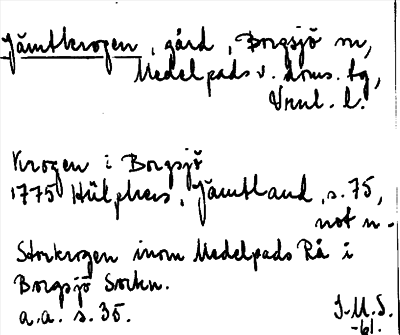 Jämtkrogen, gård, Borgsjö sn,
Medelpads v. doms. tg,
Vnnl. l.
Krogen i Borgsjö
1775 Hülphers, Jämtland, s. 75,
not n.
Storkrogen inom Medelpads Rå i
Borgsjö Sockn.
a.a. s. 35.
J.M.S.
-61.